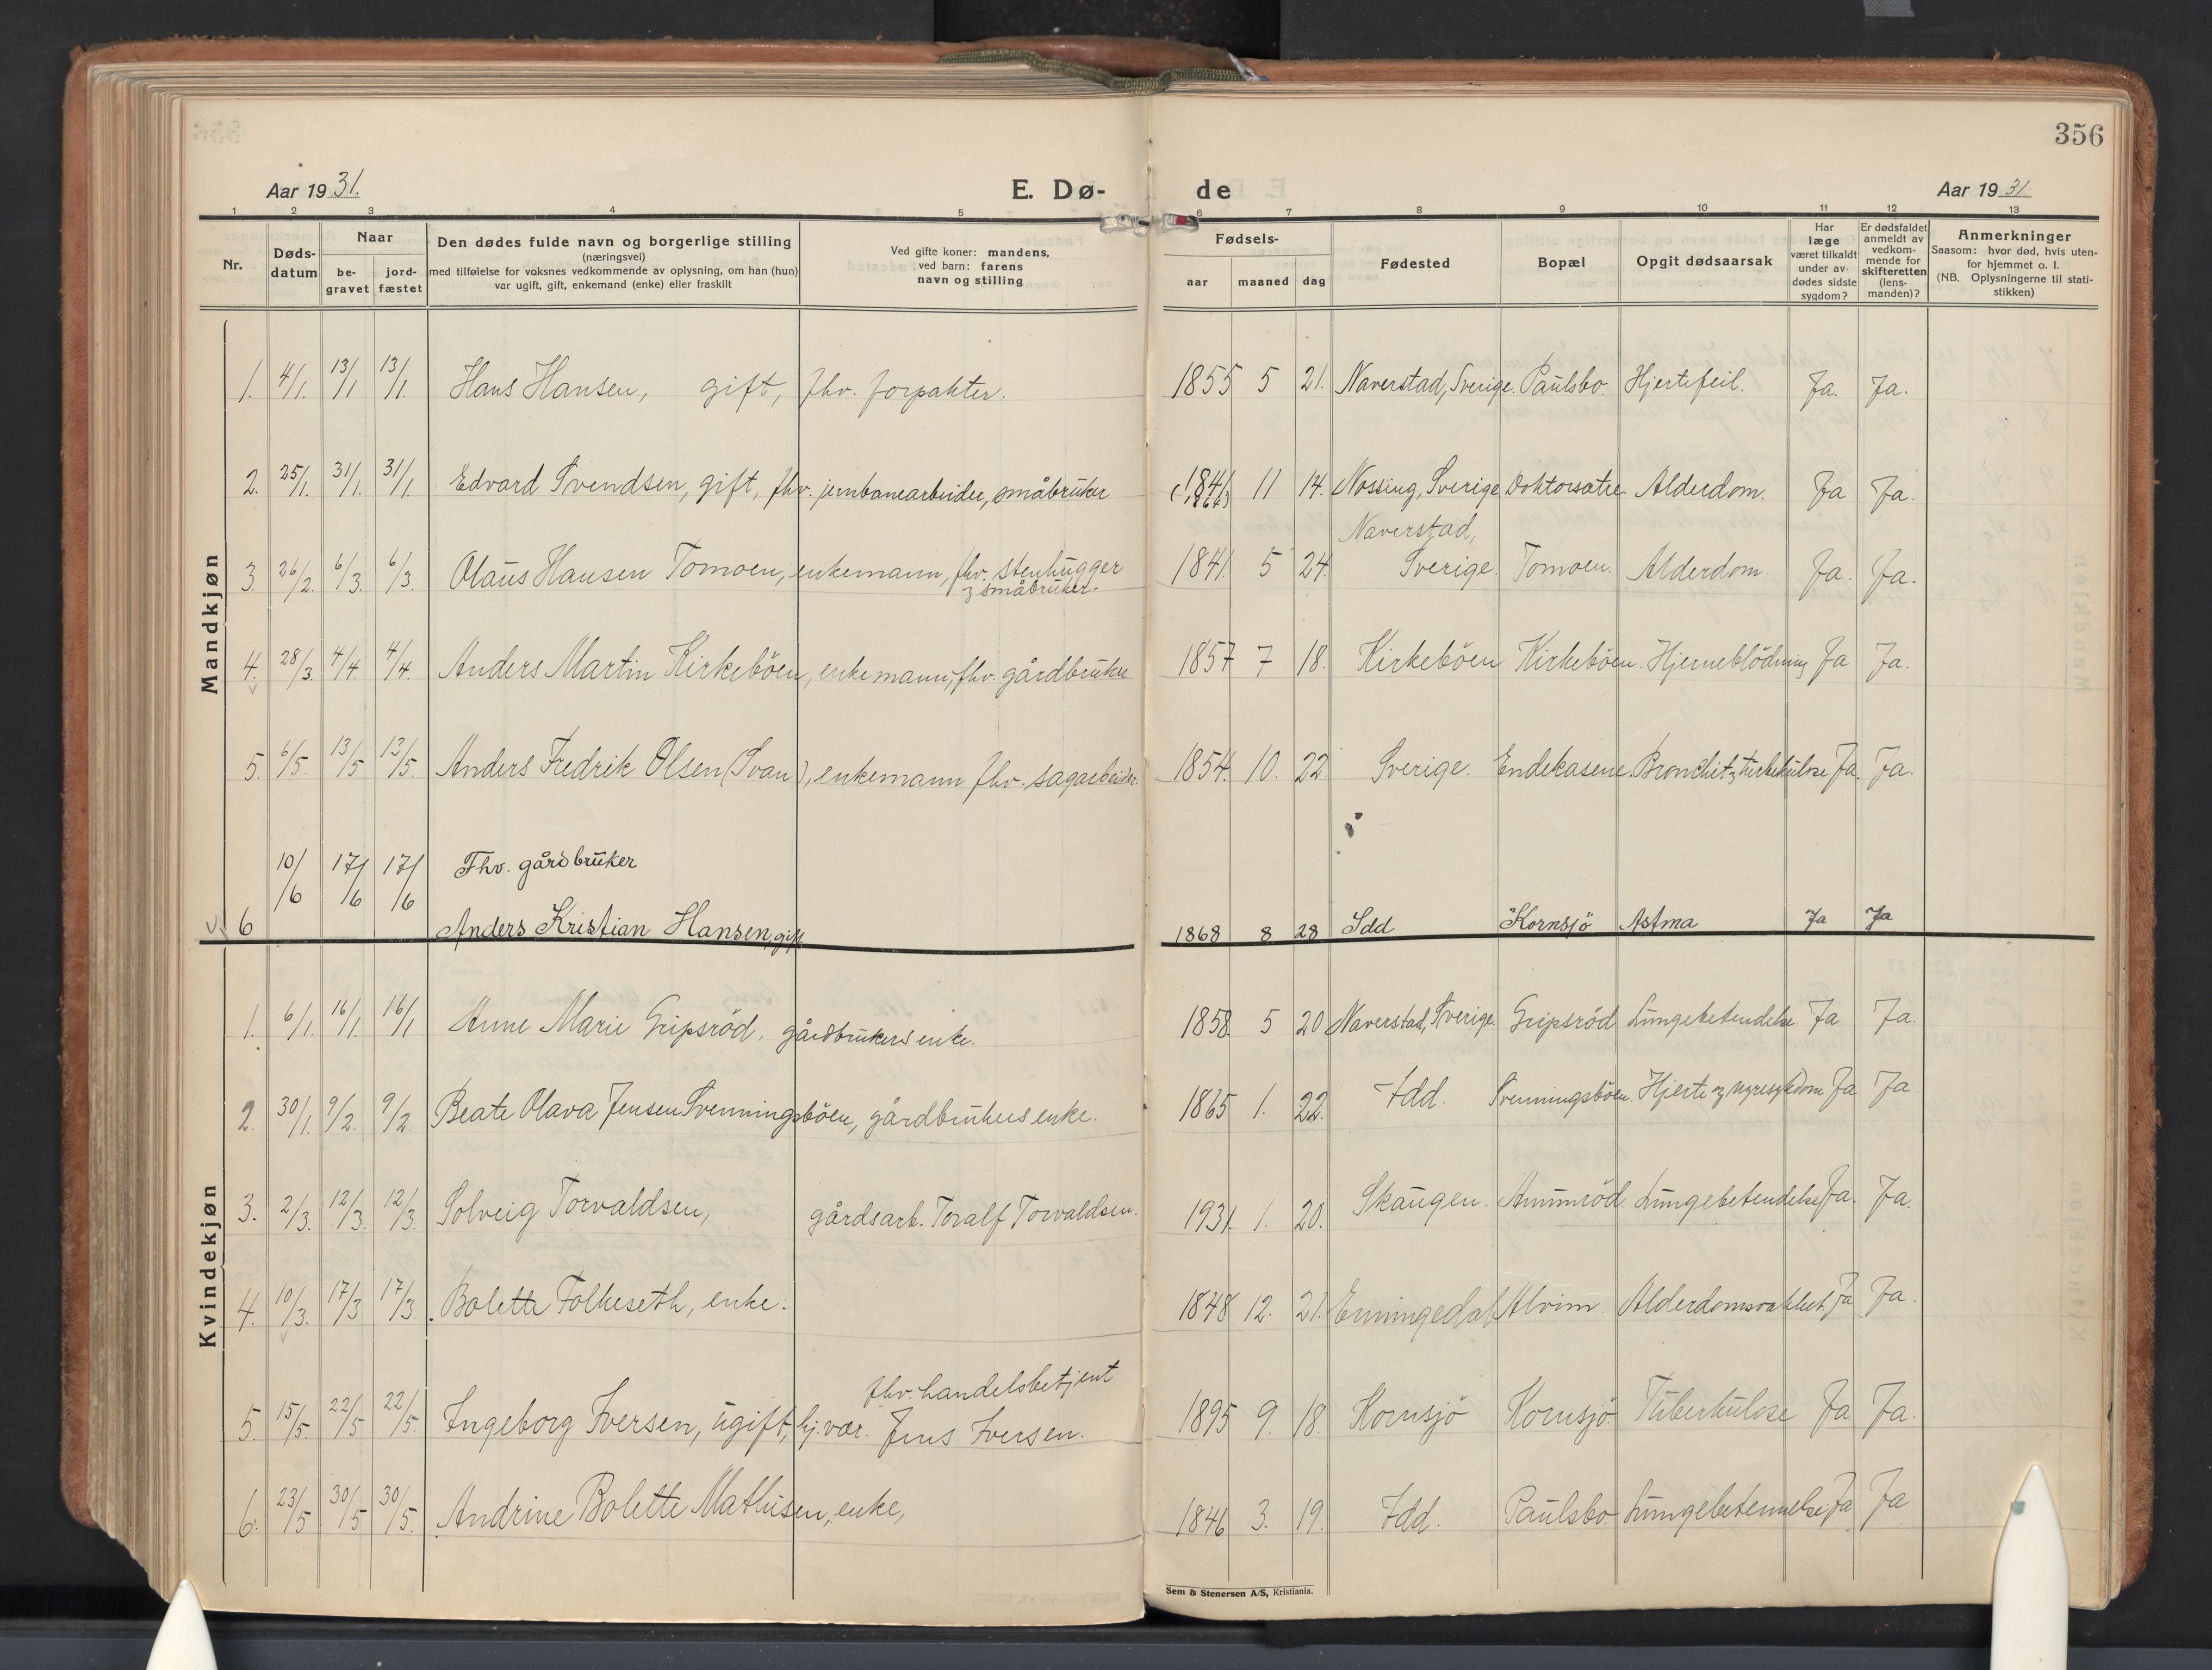 356
Aar 1931. E. Dø- de Aar 1931.
1 2 3 4 5 6 7 8 9 10 11 12 13
Nr.
Døds-datum
Naar
be-gravet
jord-fæstet
Den dødes fulde navn og borgerlige stilling
(næringsvei)
med tilføielse for voksnes vedkommende av oplysning, om han (hun)
var ugift, gift, enkemand (enke) eller fraskilt
Ved gifte koner: mandens,
ved barn: farens
navn og stilling
Fødsels-
aar maaned dag
Fødested
Bopæl
Opgit dødsaarsak
Har
læge
været tilkaldt
under av-
dødes sidste
sygdom?
Er dødsfaldet
anmeldt av
vedkom-
mende for
skifteretten
(lens-
manden)?
Anmerkninger
Saasom: hvor død, hvis uten-
for hjemmet o. l.
(NB. Oplysningerne til stati-
stikken)
Mandkjøn
1. 4/1. 13/1 13/1. Hans Hansen, gift, fhv. forpakter. 1855 5 21. Naverstad, Sverige. Paulsbo. Hjertefeil. Ja. Ja.
2. 25/1. 31/1. 31/1. Edvard Svendsen, gift, fhv. jernbanearbeider, småbruker 1841 11 14. Sverige Alderdom. Ja Ja.
Naverstad,
3. 26/2. 6/3. 6/3. Olaus Hansen Tomoen, enkemann, fhv. stenhugger 1841. 5 24. Sverige. Tomoen. Alderdom. Ja. Ja.
og småbruker.
4. 28/3. 4/4. 4/4. Anders Martin Kirkeböen, enkemann, fhv. gårdbruker 1857 7 18. Kirkeböen Kirkeböen. Hjerneblödning Ja Ja.
5. 6/5. 13/5 13/5. Anders Fredrik Olsen (Svan), enkemann fhv. sagarbeider. 1854. 10. 22 Sverige. Endekasene. Bronchit og tuberkulose Ja. Ja.
10/6 17/6 17/6 Fhv. gårdbruker
6 Anders Kristian Hansen, gift 1868 8 28 Idd Kornsjö Astma Ja Ja
Kvindekjøn
1. 6/1. 16/1. 16/1 Anne Marie Gripsröd, gårdbrukers enke. 1858. 5 20 Naverstad, Sverige. Gripsröd Lungebetendelse. Ja Ja.
2. 30/1. 9/2. 9/2. Beate Olava Jensen Svenningsböen, gårdbrukers enke. 1865 1. 22. Idd. Svenningsböen. Hjerte og nyresykdom Ja Ja
3. 2/3. 12/3. 12/3. Solveig Torvaldsen, gårdsarb. Toralf Torvaldsen. 1931. 1. 20. Skaugen. Amunröd. Lungebetendelse Ja. Ja.
4. 10/3. 17/3 17/3. Bolette Folkeseth, enke. 1848 12. 21. Enningedal Alvim. Ja Ja.
fhv. handelsbetjent
5. 15/5. 22/5 22/5. Ingeborg Iversen, ugift, hj. vær. Jens Iversen. 1895 9. 18. Kornsjö Kornsjö Tuberkulose Ja Ja.
6. 23/5 30/5 30/5. Andrine Bolette Mathisen, enke, 1846 3. 19. Idd. Paulsbo. Lungebetennelse Ja Ja
Sem & Stenersen A/S, Kristiania.